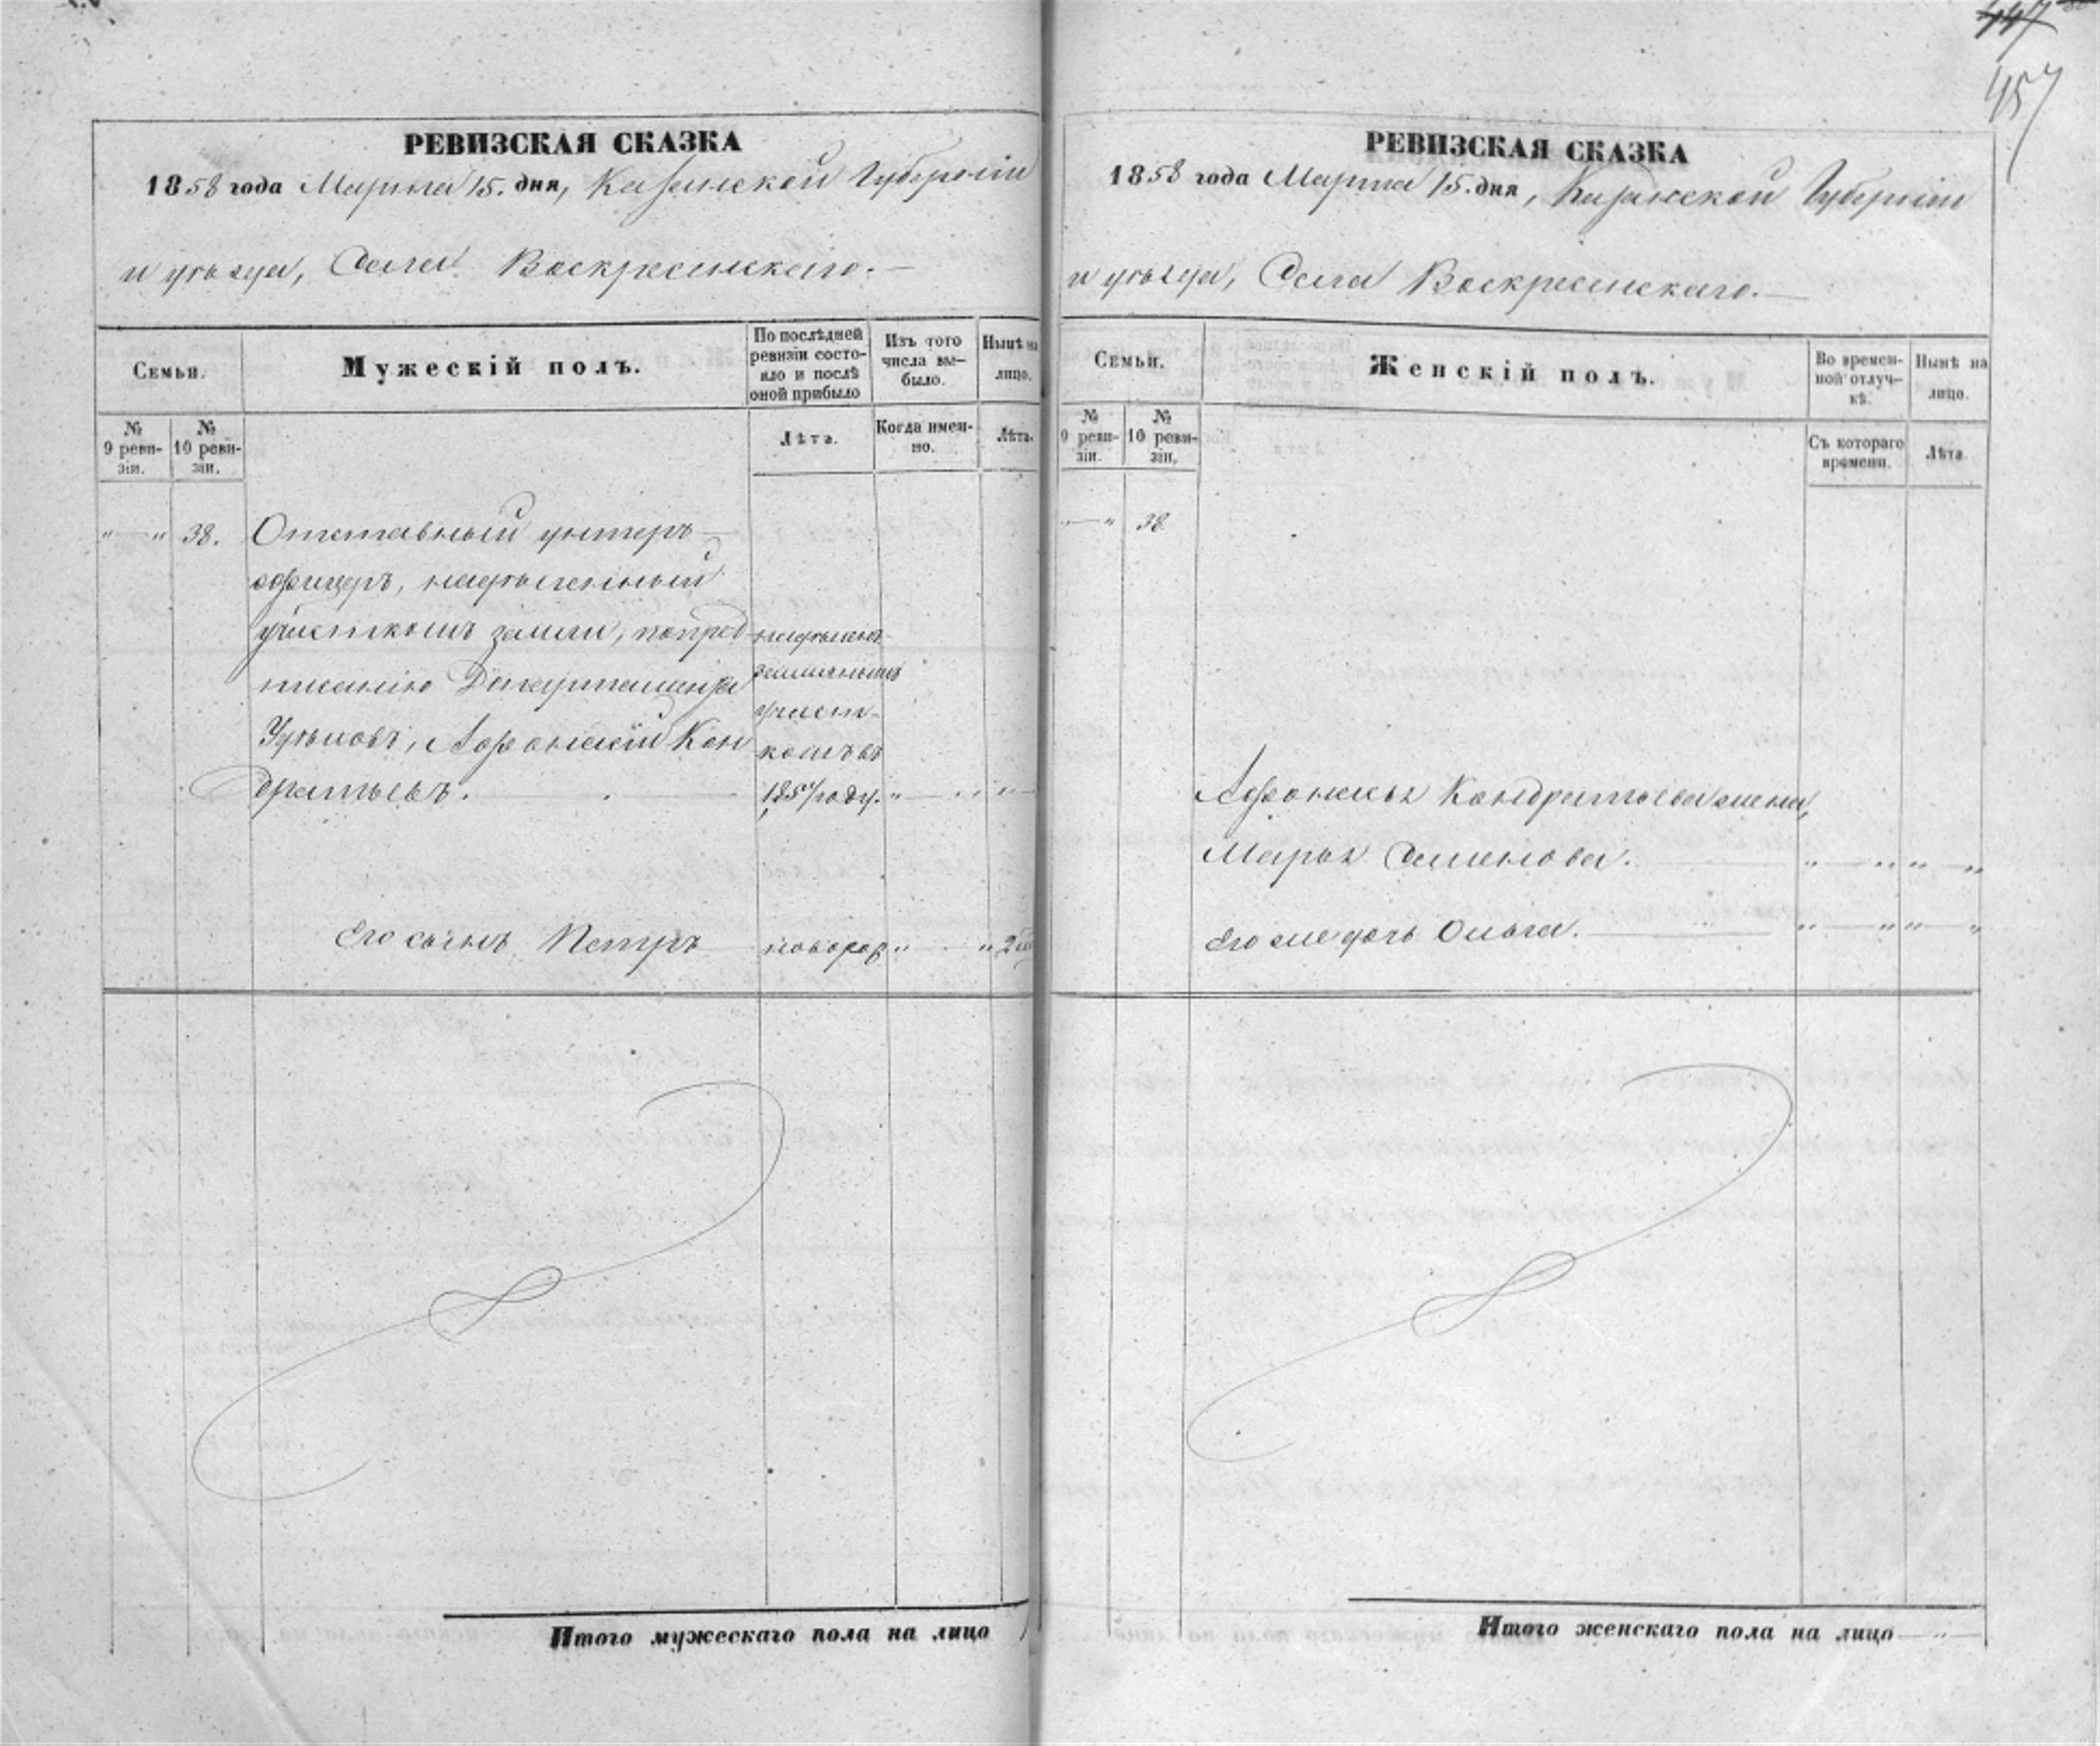 447
457
РЕВИЗСКАЯ СКАЗКА
1858 года Марта 15. дня, Казанской Губерніи
и уѣзда, Села Воскресенскаго.
Семьи.
Мужескій полъ.
По послѣдней ревизіи состояло и послѣ оной прибыло
Изъ того числа выбыло.
Нынѣ на лицо.
№ 9 ревизіи.
№ 10 ревизіи.
Лѣта.
Когда именно.
Лѣта.
" — " 38. Отставный унтеръ-
офицеръ, надѣленный
участкомъ земли, по пред-
писанію Департамента
Удѣловъ, Афонасій Кон
дратьевъ.
надѣленъ
земельнымъ
участ-
комъ въ
1857 году.
Его сынъ Петръ новорож
Итого мужескаго пола на лицо 1
РЕВИЗСКАЯ СКАЗКА
1858 года Марта 15. дня, Казанской Губерніи
и уѣзда, Села Воскресенскаго.
Семьи.
Женскій полъ.
Во временной отлучкѣ.
Нынѣ на лицо.
№ 9 ревизіи.
№ 10 ревизіи.
Съ котораго времени.
Лѣта.
" — " 38
Афонасья Кондратьева жена,
Марья Семенова. " — " " — "
Его же дочь Ольга. " — " " — "
Итого женскаго пола на лицо — " —